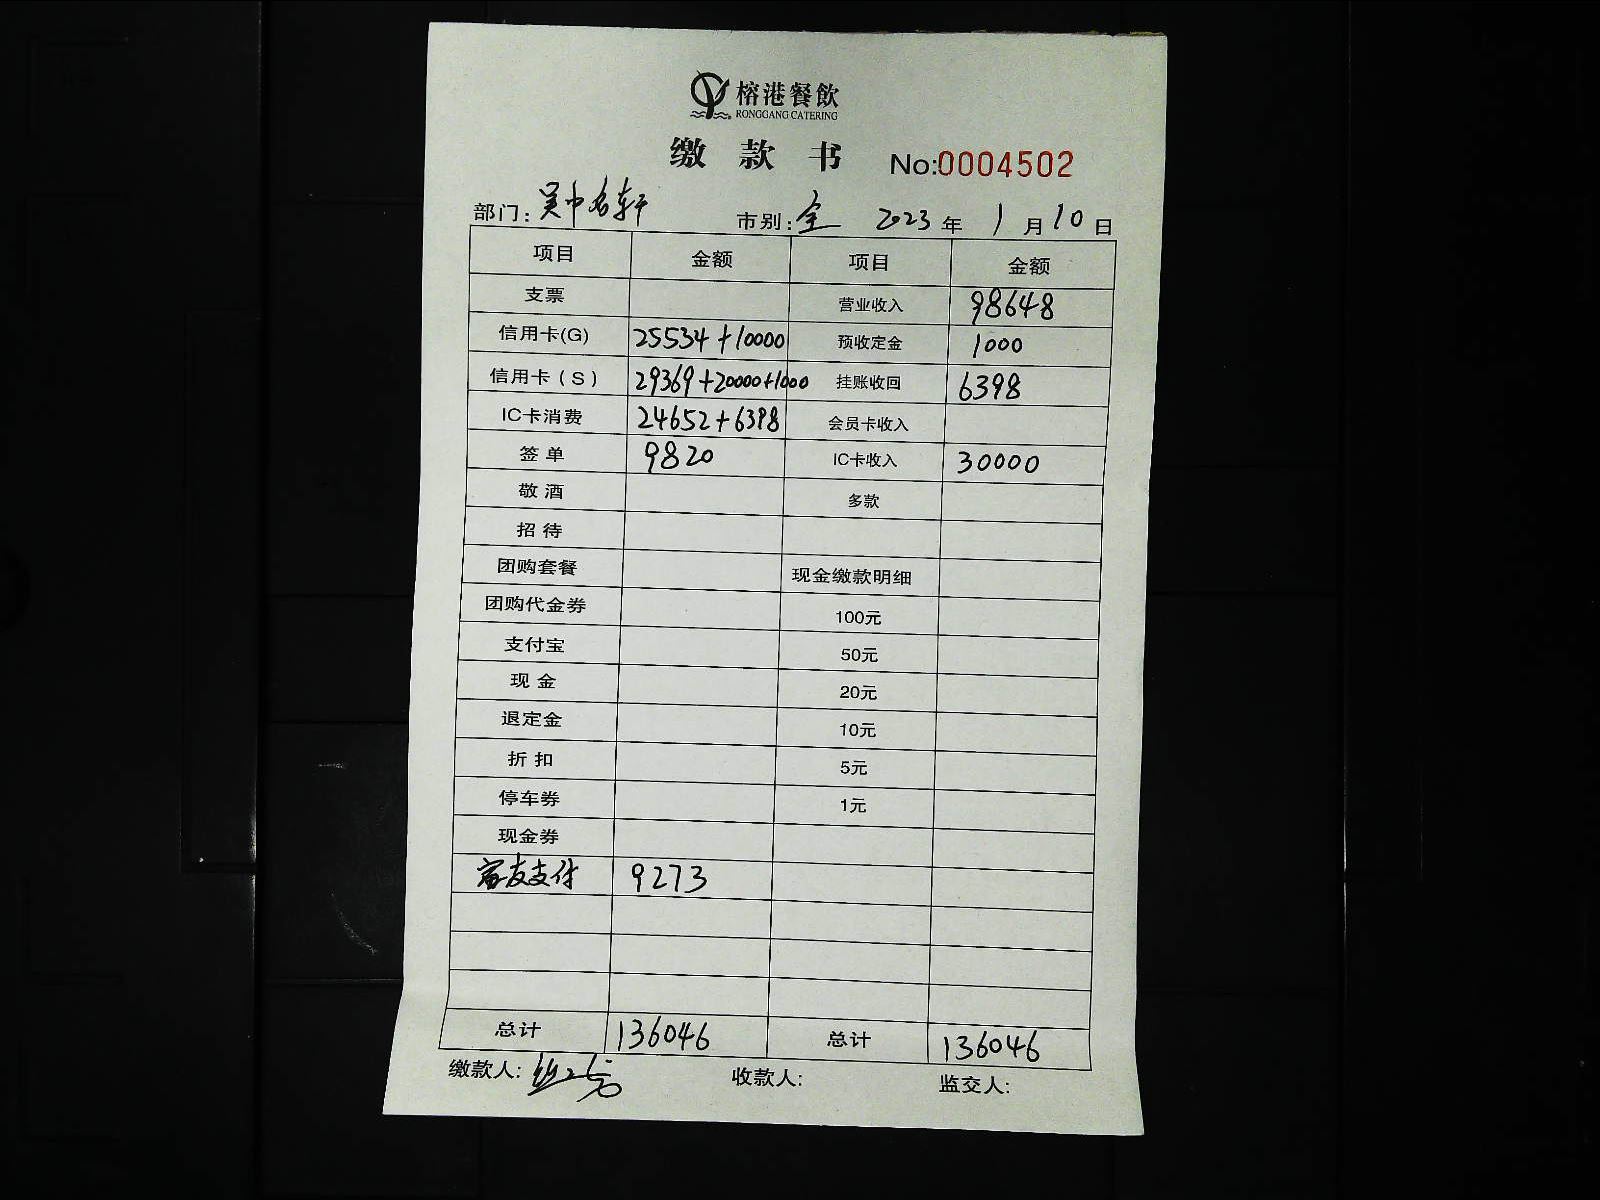 榕港餐飲
RONGGANG CATERING
缴 款 书 No:0004502
部门: 吴中名轩 市别: 全 2023 年 1 月 10 日
项目 金额 项目 金额
支票 营业收入 98648
信用卡(G) 25534+10000 预收定金 1000
信用卡(S) 29369+20000+1000 挂账收回 6398
IC卡消费 24652+6398 会员卡收入
签 单 9820 IC卡收入 30000
敬 酒 多款
招 待
团购套餐 现金缴款明细
团购代金券 100元
支付宝 50元
现 金 20元
退定金 10元
折 扣 5元
停车券 1元
现金券
支付 9273
总计 136046 总计 136046
缴款人: 收款人: 监交人: